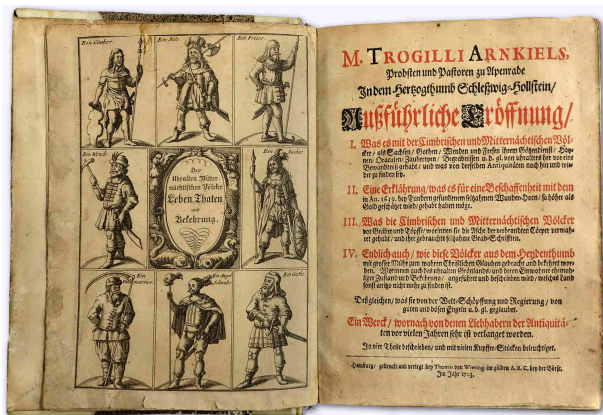 Ein Cimber
Ein Jüte
Ein Friese
Ein Wende
Der
Uhralten Mitter-
nächtischen Völcker
Leben, Thaten
und
Bekehrung.
Ein Sachse
Ein
Ein
Ein Gothe
M. TROGILLI ARNKIELS,
Probsten und Pastoren zu Apenrade
In dem Hertzogthumb Schleßwig-Hollstein/
Außführliche Eröffnung/
I. Was es mit der Cimbrischen und Mitternächtischen Völ-
cker/ als Sachsen/ Gothen/ Wenden und Fresen ihrem Götzendienst/ Hay-
nen/ Oraculen/ Zaubereyen/ Begräbnissen u. d. gl. von uhralters her vor eine
Bewandtniß gehabt/ und was von derselben Antiquitäten noch hin und wie-
der zu finden sey.
II. Eine Erklährung/ was es für eine Beschaffenheit mit dem
in Ao. 1639. bey Tundern gefundenem seltzahmen Wunder-Horn/ so höher als
Gold geschätzet wird/ gehabt haben müge.
III. Was die Cimbrischen und Mitternächtischen Völcker
vor Gräber und Töpffe/ worinnen sie die Asche der verbrandten Cörper verwah-
ret gehabt/ und ihre gebrauchte seltzahme Grab-Schrifften.
IV. Endlich auch/ wie diese Völcker aus dem Heydenthumb
mit grosser Mühe zum wahren Christlichen Glauben gebracht und bekehret wor-
den. Worinnen auch des uhralten Grönlands/ und deren Einwohner ehemah-
liger Zustand und Bekehrung/ angeführet und beschrieben wird/ welches Land
sonst anitzo nicht mehr zu finden ist.
Deßgleichen/ was sie von der Welt-Schöpffung und Regierung/ von
guten und bösen Engeln u. d. gl. geglaubet.
Ein Werck/ wornach von denen Liebhabern der Antiquitä-
ten vor vielen Jahren sehr ist verlanget worden.
In vier Theile beschrieben/ und mit vielen Kupffer-Stücken beleuchtiget.
Hamburg/ gedruckt und verlegt bey Thomas von Wiering/ im gülden A, B, C, bey der Börse,
Im Jahr 1703.